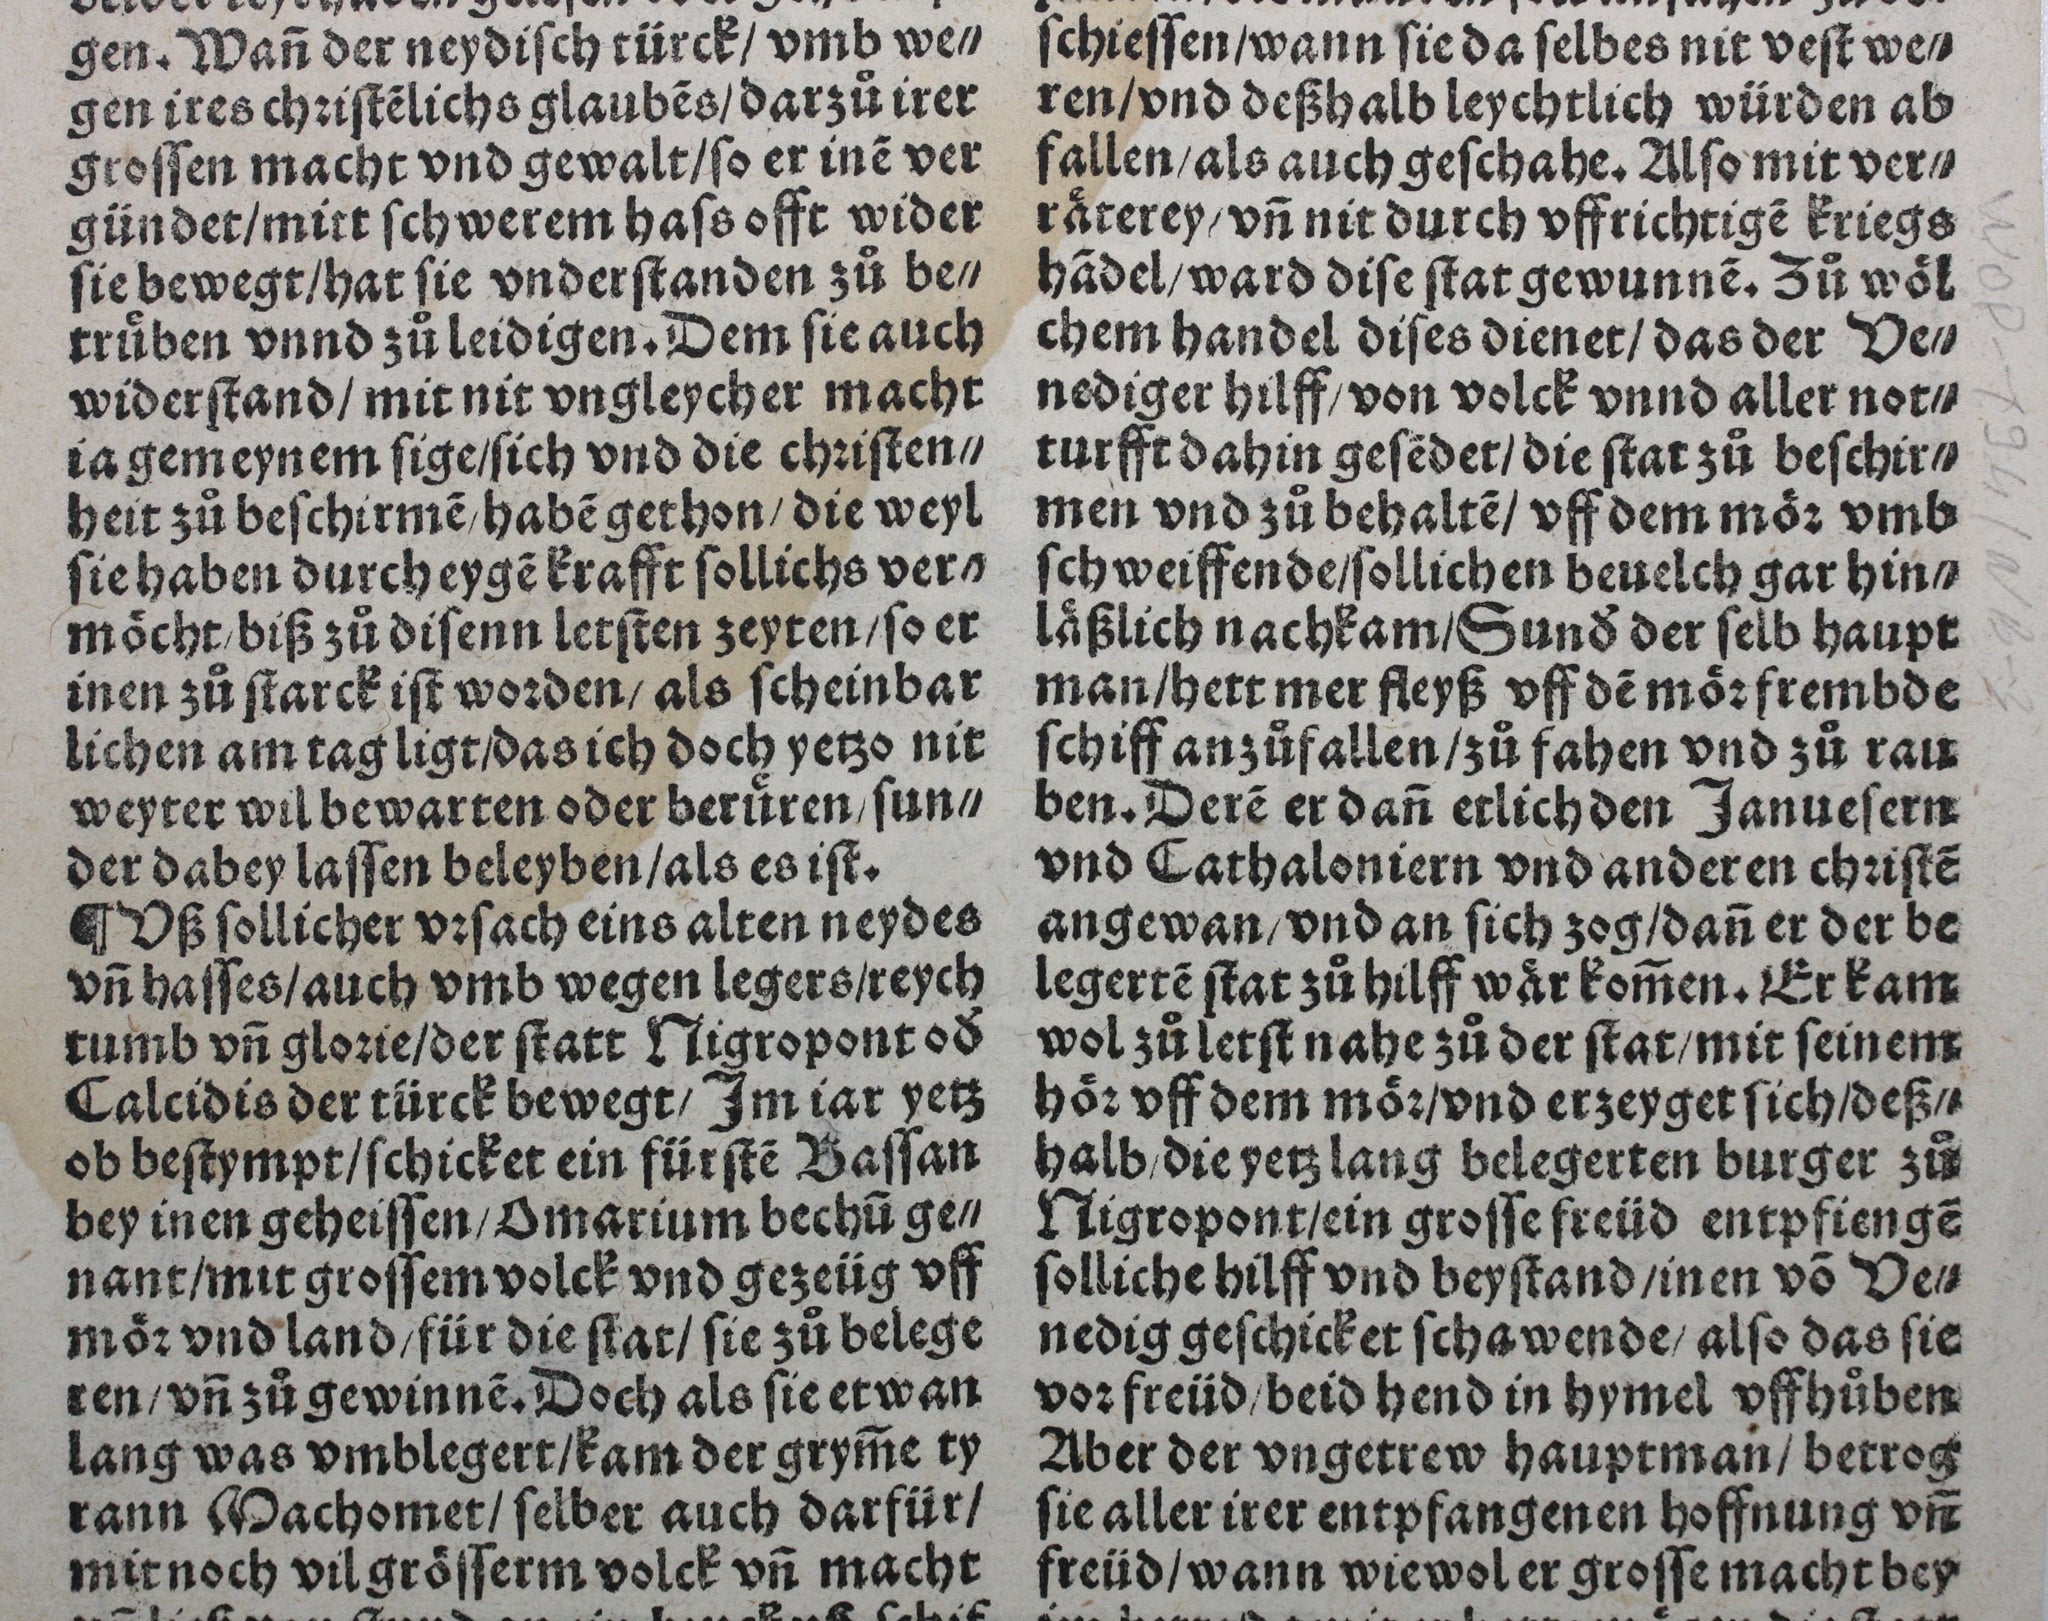 gen. Wañ der neydisch türck/ vmb we⸗
gen ires christẽlichs glaubẽs/darzů irer
grossen macht vnd gewalt/so er inẽ ver
gündet/mitt schwerem hass offt wider
sie bewegt/hat sie vnderstanden zů be⸗
trüben vnnd zů leidigen. Dem sie auch
widerstand/ mit nit vngleycher macht
ia gemeynem sige/sich vnd die christen⸗
heit zů beschirmẽ/habẽ gethon/die weyl
sie haben durch eygẽ krafft sollichs ver⸗
möcht/biß zů disenn letsten zeyten/so er
inen zů starck ist worden/ als scheinbar
lichen am tag ligt/das ich doch yetzo nit
weyter wil bewarten oder berüren/sun⸗
der dabey lassen beleyben/als es ist.
¶ Vß sollicher vrsach eins alten neydes
vñ hasses/auch vmb wegen legers/reych
tumb vñ glorie/der statt Nigropont oď
Calcidis der türck bewegt/ Im iar yetz
ob bestympt/schicket ein fürstẽ Bassan
bey inen geheissen/Omarium bechũ ge⸗
nant/mit grossem volck vnd gezeüg vff
mör vnd land/für die stat/ sie zů belege
ren/vñ zů gewinnẽ. Doch als sie etwan
lang was vmblegert/kam der grym̃e ty
rann Machomet/ selber auch darfür/
mit noch vil grösserm volck vñ macht
schiessen/wann sie da selbes nit vest we⸗
ren/vnd deßhalb leychtlich würden ab
fallen/als auch geschahe. Also mit ver⸗
räterey/vñ nit durch vffrichtigẽ kriegs
hãdel/ward dise stat gewunnẽ. Zů wöl
chem handel dises dienet/das der Ve⸗
nediger hilff/von volck vnnd aller not⸗
turfft dahin gesẽdet/die stat zů beschir⸗
men vnd zů behaltẽ/ vff dem mör vmb
schweiffende/sollichen beuelch gar hin⸗
läßlich nachkam/Sunď der selb haupt
man/hett mer fleyß vff dẽ mör frembde
schiff anzůfallen/zů fahen vnd zů rau
ben. Derẽ er dañ etlich den Januesern
vnd Cathaloniern vnd anderen christẽ
angewan/vnd an sich zog/dañ er der be
legertẽ stat zů hilff wär kom̃en. Er kam
wol zů letst nahe zů der stat/mit seinem
hör vff dem mör/vnd erzeyget sich/deß⸗
halb/die yetz lang belegerten burger zů
Nigropont/ein grosse freüd entpfiengẽ
solliche hilff vnd beystand/inen võ Ve⸗
nedig geschicket schawende/ also das sie
vor freüd/beid hend in hymel vffhůben
Aber der vngetrew hauptman/ betrog
sie aller irer entpfangenen hoffnung vñ
freüd/wann wiewol er grosse macht bey